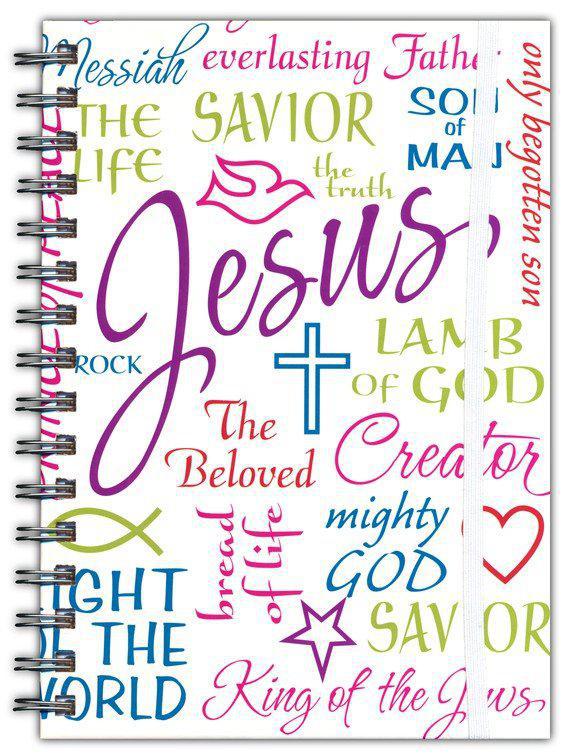 Messiah
everlasting Father
THE
LIFE
SAVIOR
SON
of
MAN
only begotten son
the
truth
Jesus
ROCK
LAMB
OF GOD
The
Beloved
Creator
bread
of life
mighty
GOD
LIGHT
OF THE
WORLD
SAVIOR
King of the Jews